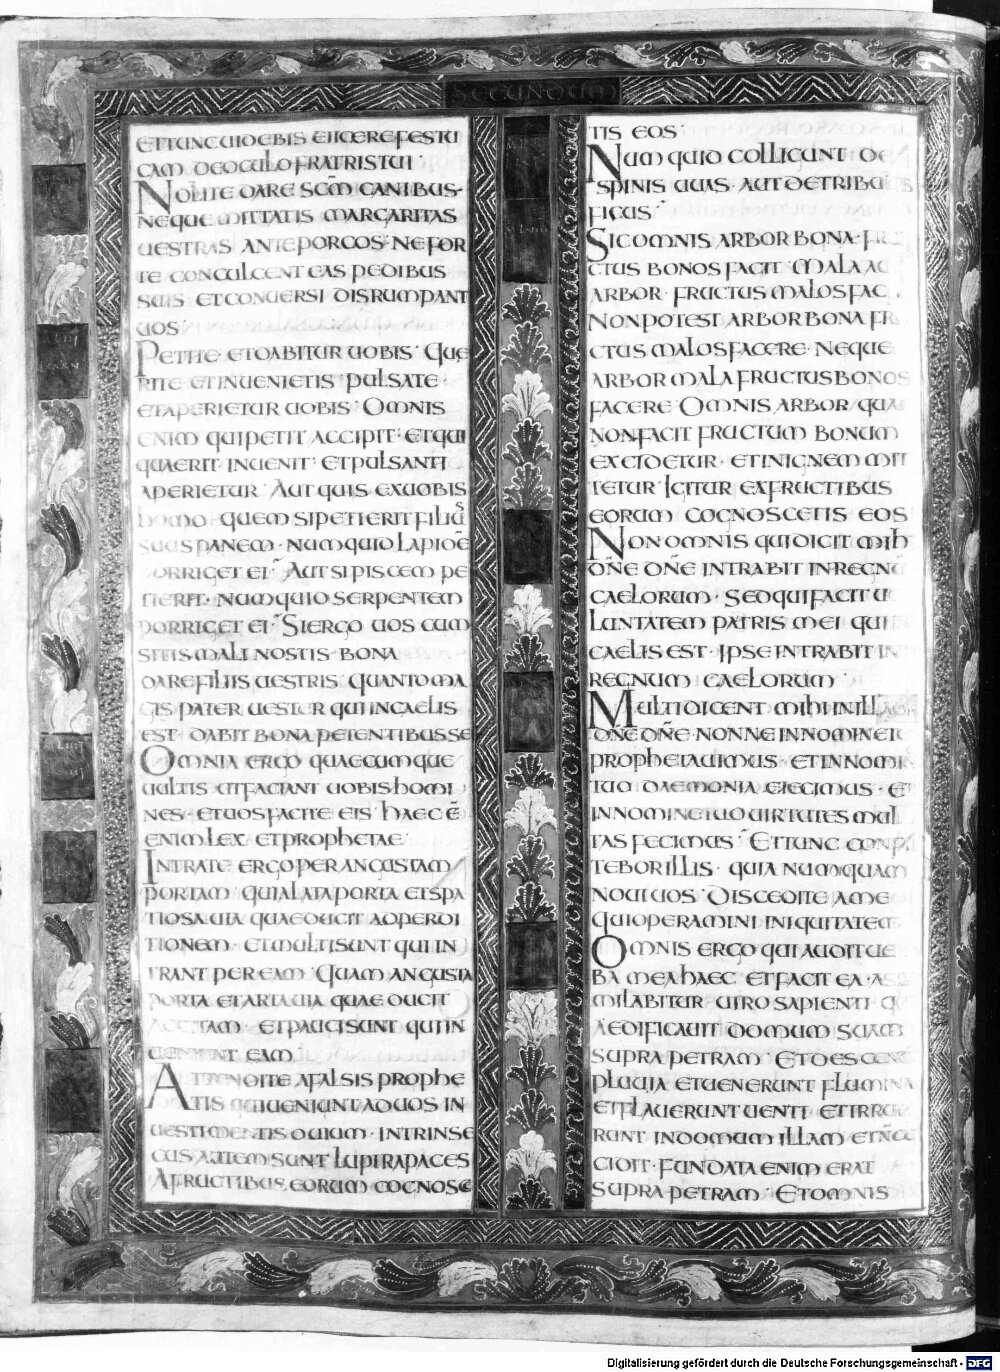 SECUNDUM
ET TUNC UIDEBIS EIICERE FESTU
CAM DE OCULO FRATRIS TUI
NOLITE DARE SCM CANIBUS·
NEQUE MITTATIS MARGARITAS
UESTRAS ANTE PORCOS· NE FOR
TE CONCULCENT EAS PEDIBUS
SUIS ET CONUERSI DISRUMPANT
UOS·
PETITE· ET DABITUR UOBIS· QUE
RITE ET INUENIETIS PULSATE·
ET APERIETUR UOBIS· OMNIS
ENIM QUI PETIT ACCIPIT· ET QUI
QUAERIT· INUENIT· ET PULSANTI
APERIETUR· AUT QUIS EX UOBIS
HOMO QUEM SI PETIERIT FILIŪ
SUUS PANEM· NUMQUID LAPIDĒ
PORRIGET EI· AUT SI PISCEM PE
TIERIT· NUMQUID SERPENTEM
PORRIGET EI· SI ERGO UOS CUM
SITIS MALI NOSTIS· BONA
DARE FILIIS UESTRIS QUANTO MA
GIS PATER UESTER QUI IN CAELIS
EST· DABIT BONA PETENTIBUS SE
OMNIA ERGO QUAECUMQUE
UULTIS UT FACIANT UOBIS HOMI
NES· ET UOS FACITE EIS· HAEC Ē
ENIM LEX ET PROPHETAE·
INTRATE ERGO PER ANGUSTAM
PORTAM· QUIA LATA PORTA ET SPA
TIOSA UIA QUAE DUCIT AD PERDI
TIONEM· ET MULTI SUNT QUI IN
TRANT PER EAM· QUAM ANGUSTA
PORTA ET ARTA UIA QUAE DUCIT
AD UITAM· ET PAUCI SUNT QUI IN
UENIUNT EAM·
ATTENDITE A FALSIS PROPHE
TIS QUI UENIUNT AD UOS IN
UESTIMENTIS OUIUM· INTRINSE
CUS AUTEM SUNT LUPI RAPACES
A FRUCTIBUS EORUM COGNOSCE
TIS EOS·
NUMQUID COLLIGUNT DE
SPINIS UUAS· AUT DE TRIBULIS
FICUS·
SIC OMNIS ARBOR BONA· FRU
CTUS BONOS FACIT· MALA AU
ARBOR· FRUCTUS MALOS FAC
NON POTEST ARBOR BONA FRU
CTUS MALOS FACERE· NEQUE
ARBOR MALA FRUCTUS BONOS
FACERE· OMNIS ARBOR QUAE
NON FACIT FRUCTUM BONUM
EXCIDETUR· ET IN IGNEM MIT
TETUR· IGITUR EX FRUCTIBUS
EORUM COGNOSCETIS EOS
NON OMNIS QUI DICIT MIHI
DÑE DÑE INTRABIT IN REGNU
CAELORUM· SED QUI FACIT UO
LUNTATEM PATRIS MEI QUI
CAELIS EST· IPSE INTRABIT IN
REGNUM CAELORUM·
MULTI DICENT MIHI IN ILLA
DÑE DÑE· NONNE IN NOMINE
PROPHETAUIMUS· ET IN NOMI
TUO DAEMONIA EIECIMUS· ET
IN NOMINE TUO UIRTUTES MUL
TAS FECIMUS· ET TUNC CONFI
TEBOR ILLIS· QUIA NUMQUAM
NOUI UOS· DISCEDITE A ME
QUI OPERAMINI INIQUITATEM
OMNIS ERGO QUI AUDIT UE
BA MEA HAEC· ET FACIT EA· ASSI
MILABITUR UIRO SAPIENTI· QUI
AEDIFICAUIT DOMUM SUAM
SUPRA PETRAM· ET DESCEN
PLUUIA ET UENERUNT FLUMINA
ET FLAUERUNT UENTI· ET IRRUE
RUNT IN DOMUM ILLAM ET N̄ CE
CIDIT· FUNDATA ENIM ERAT
SUPRA PETRAM· ET OMNIS
Digitalisierung gefördert durch die Deutsche Forschungsgemeinschaft - DFG